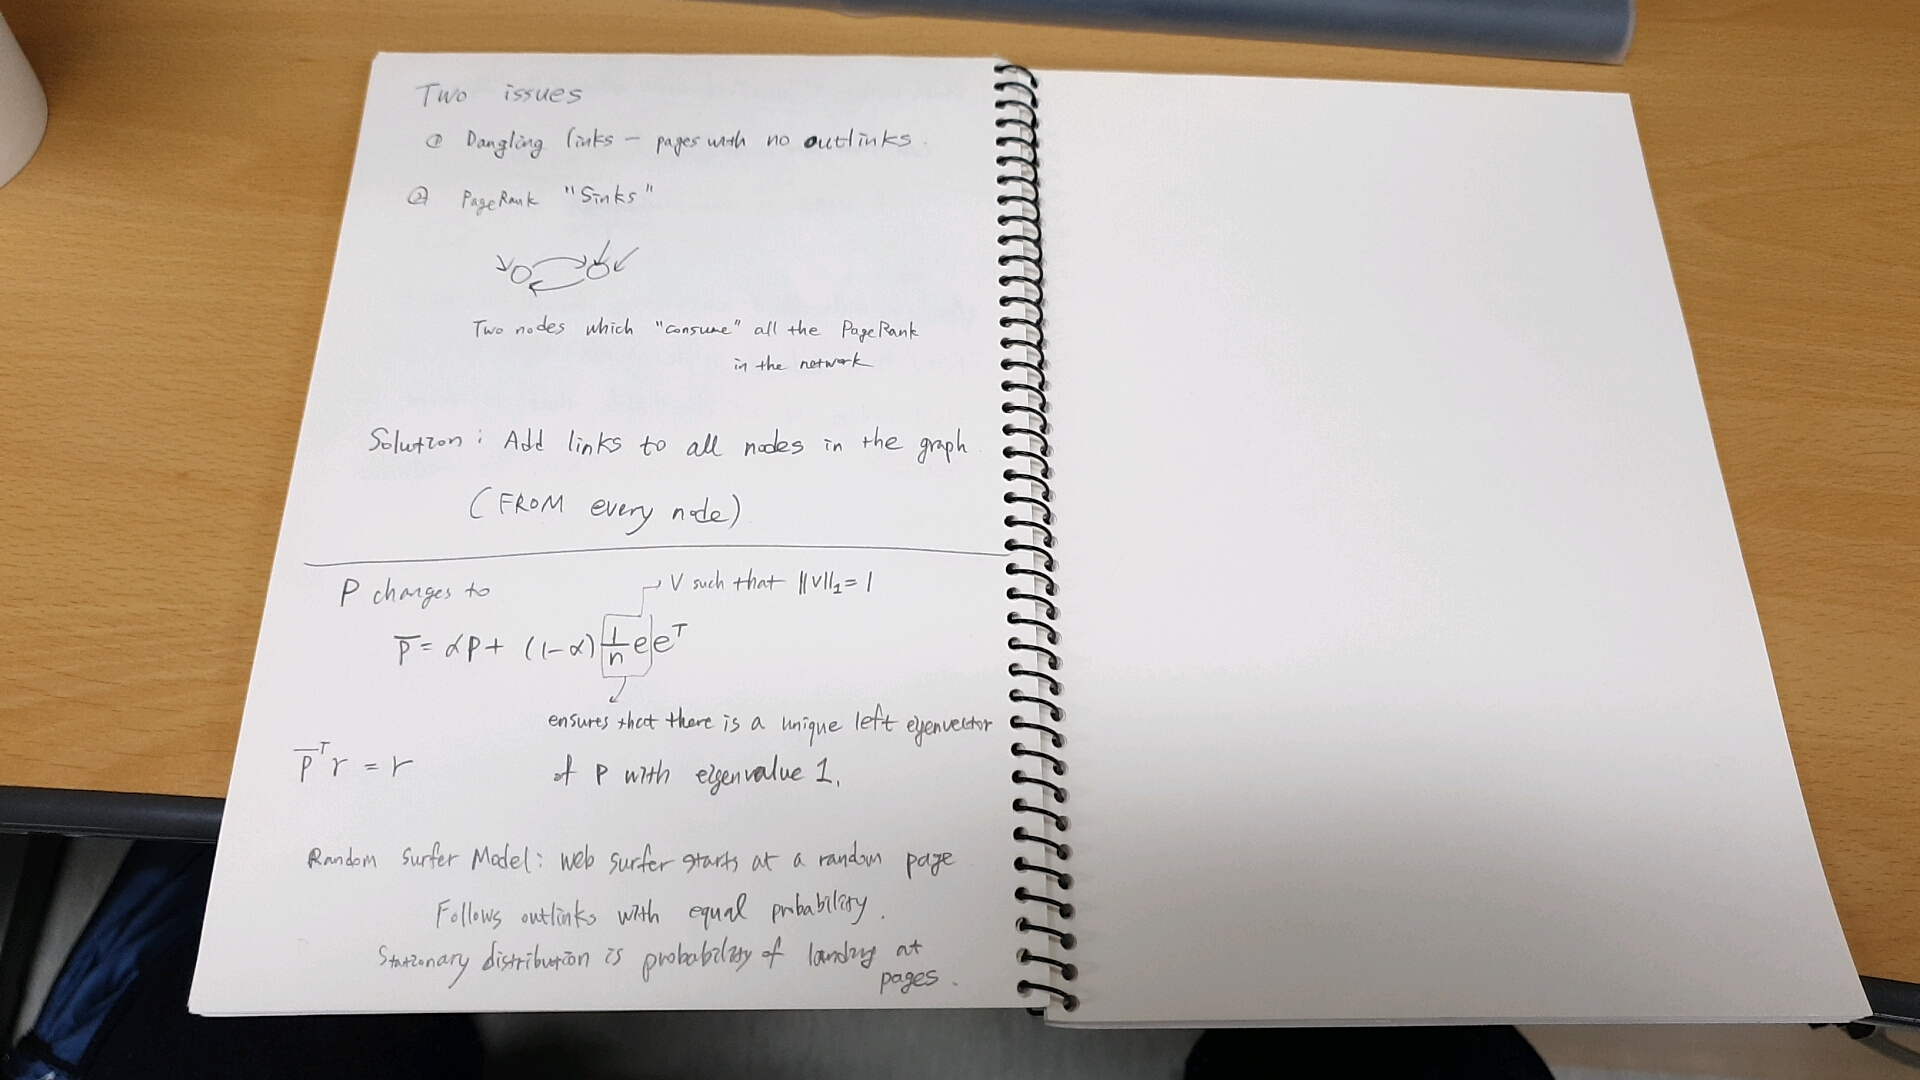 Two issues
① Dangling links – pages with no outlinks.
② PageRank "Sinks"
Two nodes which "consume" all the PageRank
in the network
Solution: Add links to all nodes in the graph.
(FROM every node)
P changes to
→ V such that ||V||₁ = 1
P̅ = αP + (1-α) 1/n e eᵀ
ensures that there is a unique left eigenvector
of P with eigenvalue 1.
P̅ᵀr = r
Random Surfer Model: web surfer starts at a random page
Follows outlinks with equal probability.
Stationary distribution is probability of landing at
pages.